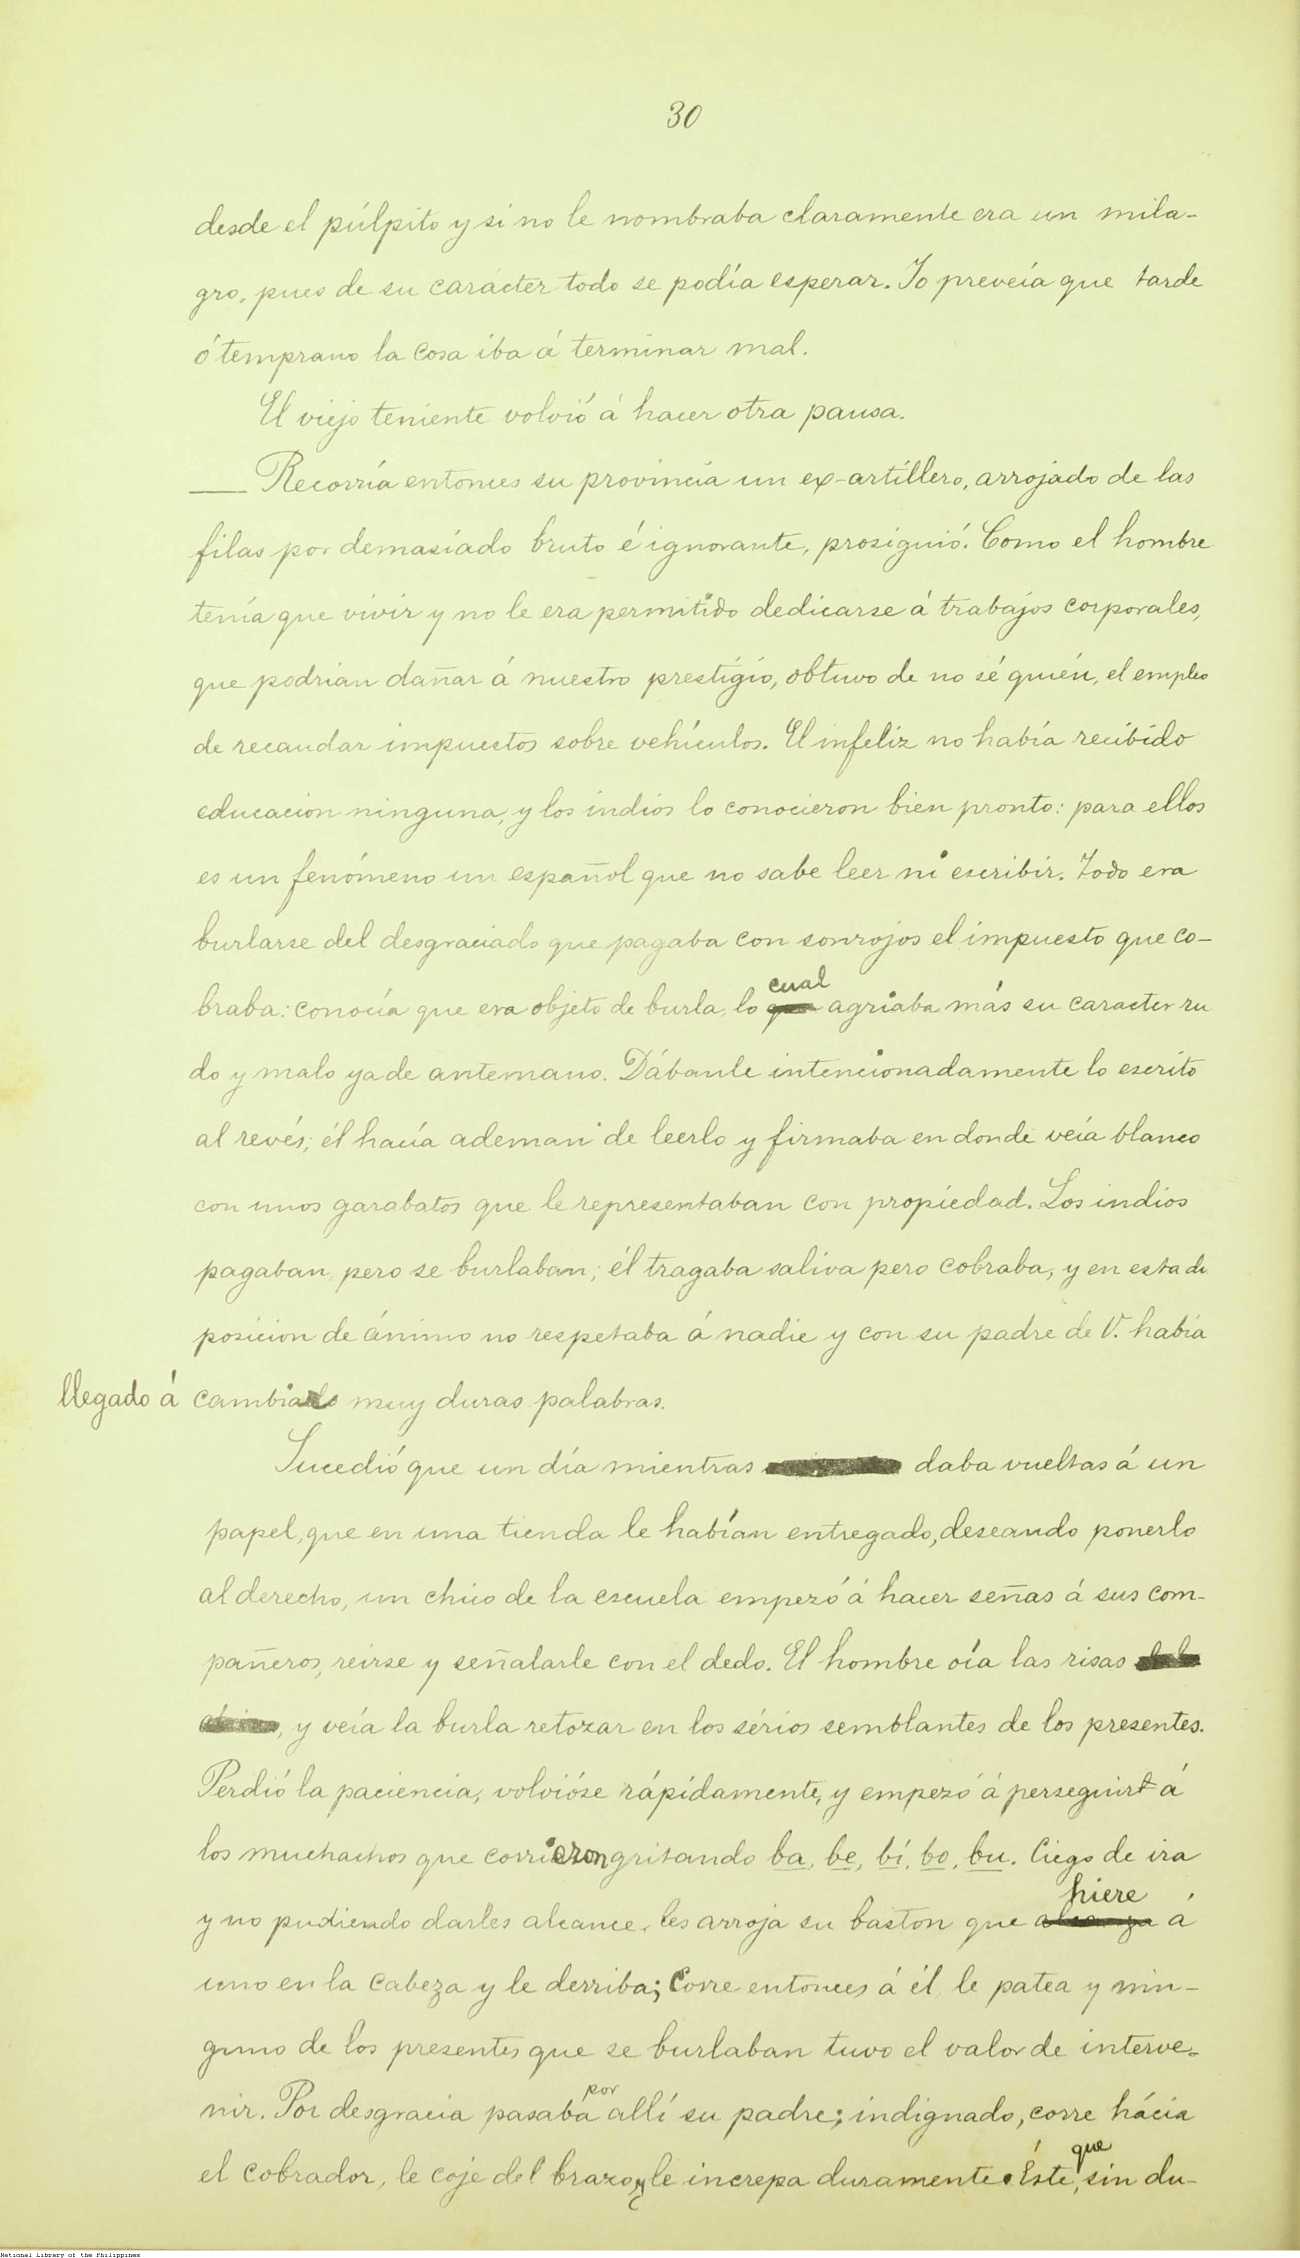 30
desde el púlpito y si no le nombraba claramente era un mila-
gro, pues de su carácter todo se podía esperar. Yo preveía que tarde
ó temprano la cosa iba á terminar mal.
El viejo teniente volvió á hacer otra pausa.
— Recorría entonces su provincia un ex-artillero, arrojado de las
filas por demasiado bruto é ignorante, prosiguió. Como el hombre
tenía que vivir y no le era permitido dedicarse á trabajos corporales,
que podrian dañar á nuestro prestigio, obtuvo de no sé quién, el empleo
de recaudar impuestos sobre vehículos. El infeliz no había recibido
educacion ninguna, y los indios lo conocieron bien pronto: para ellos
es un fenómeno un español que no sabe leer ni escribir. Todo era
burlarse del desgraciado que pagaba con sonrojos el impuesto que co-
cual
braba: conocía que era objeto de burla, lo que agriaba más su caracter ru
do y malo ya de antemano. Dábanle intencionadamente lo escrito
al revés; él hacía ademan de leerlo y firmaba en donde veía blanco
con unos garabatos que le representaban con propiedad. Los indios
pagaban, pero se burlaban; él tragaba saliva pero cobraba, y en esta di
posicion de ánimo no respetaba á nadie y con su padre de V. había
llegado á cambiar muy duras palabras.
Sucedió que un día mientras daba vueltas á un
papel, que en una tienda le habían entregado, deseando ponerlo
al derecho, un chico de la escuela empezó á hacer señas á sus com-
pañeros, reirse y señalarle con el dedo. El hombre oía las risas
, y veía la burla retozar en los sérios semblantes de los presentes.
Perdió la paciencia, volvióse rápidamente, y empezó á perseguir á
los muchachos que corrieron gritando ba, be, bi, bo, bu. Ciego de ira
hiere
y no pudiendo darles alcance, les arroja su baston que alcanza á
uno en la cabeza y le derriba; corre entonces á él, le patea y nin-
guno de los presentes que se burlaban tuvo el valor de interve-
por
nir. Por desgracia pasaba allí su padre; indignado, corre hácia
que
el cobrador, le coje del brazo, y le increpa duramente. Éste, sin du-
National Library of the Philippines